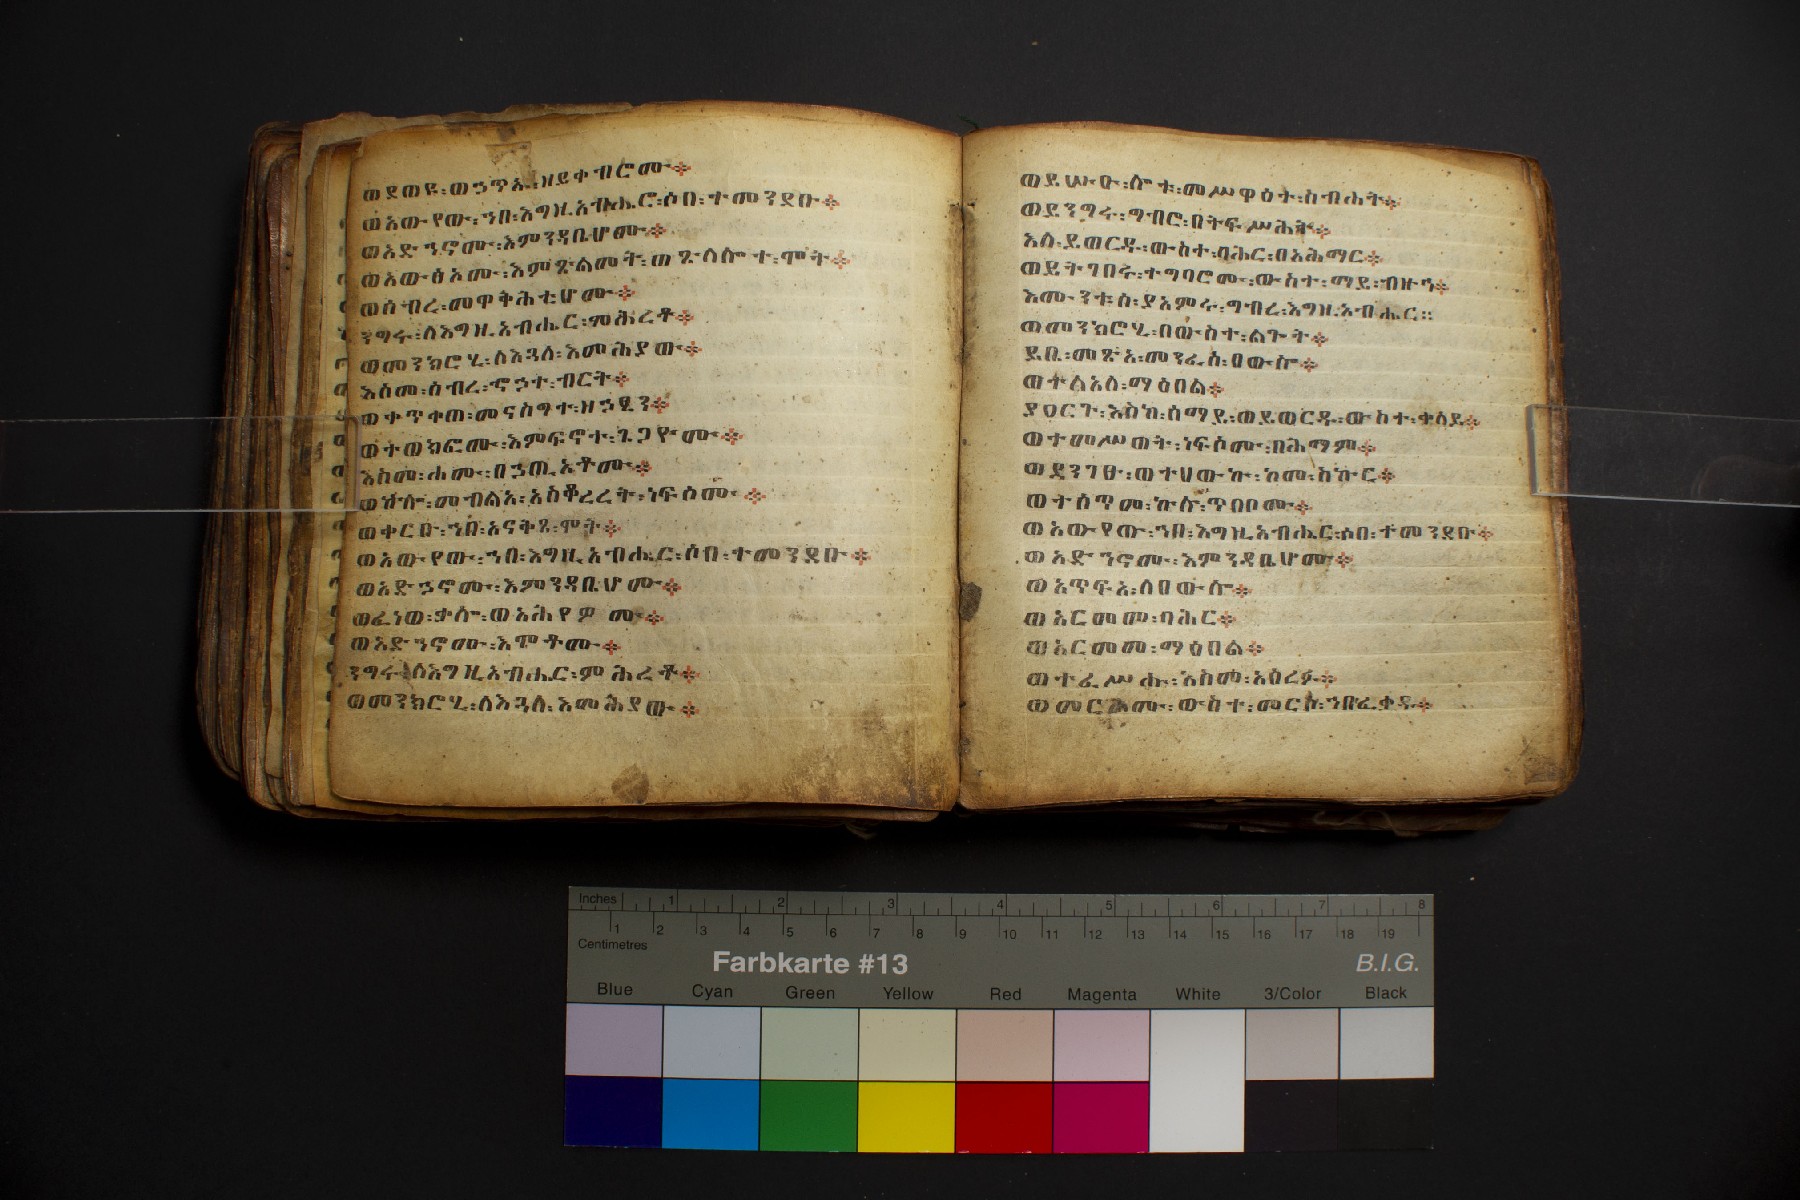 ወደወዩ፡ወኃጥአ፡ዘይቀብሮሙ፨
ወአውየው፡ኀበ፡እግዚአብሔር፡ሶበ፡ተመንደቡ፨
ወአድኀኖሙ፡እምንዳቤሆሙ፨
ወአውፅአሙ፡እምጽልመት፡ወጽላሎተ፡ሞት፨
ወሰብረ፡መዋቅሕቲሆሙ፨
ንግሩ፡ለእግዚአብሔር፡ምሕረቶ፨
ወመንክሮሂ፡ለእጓለ፡እመሕያው፨
እስመ፡ሰብረ፡ኆኃተ፡ብርት፨
ወቀጥቀጠ፡መናስግተ፡ዘኃፂን፨
ወተወክፎሙ፡እምፍኖተ፡ጌጋዮሙ፨
እስመ፡ሐሙ፡በኃጢአቶሙ፨
ወኵሎ፡መብልአ፡አስቆረረት፡ነፍሶሙ፨
ወቀርቡ፡ኀበ፡አናቅጸ፡ሞት፨
ወአውየው፡ኀበ፡እግዚአብሔር፡ሶበ፡ተመንደቡ፨
ወአድኃኖሙ፡እምንዳቤሆሙ፨
ወፈነወ፡ቃሎ፡ወአሕየዎሙ፨
ወአድኀኖሙ፡እሞቶሙ፨
ንግሩ፡ለእግዚአብሔር፡ምሕረቶ፨
ወመንክሮሂ፡ለእጓለ፡እመሕያው፨
ወይሡዑ፡ሎቱ፡መሥዋዕተ፡ስብሐት፨
ወይንግሩ፡ግብሮ፡በትፍሥሕት፨
እለ፡ይወርዱ፡ውስተ፡ባሕር፡በአሕማር፨
ወይትገበሩ፡ተግባሮሙ፡ውስተ፡ማይ፡ብዙኅ፨
እሙንቱስ፡ያአምሩ፡ግብረ፡እግዚአብሔር።
ወመንክሮሂ፡በውስተ፡ልጐት፨
ይቤ፡መጽአ፡መንፈስ፡ዐውሎ፨
ወተልአለ፡ማዕበል፨
ያዐርጉ፡እስከ፡ሰማይ፡ወይወርዱ፡ውስተ፡ቀላይ፨
ወተመሥወት፡ነፍሶሙ፡በሕማም፨
ወደንገፁ፡ወተሀውኩ፡ከመ፡ስኩር፨
ወተሰጥመ፡ኵሉ፡ጥበቦሙ፨
ወአውየው፡ኀበ፡እግዚአብሔር፡ሶበ፡ተመንደቡ፨
ወአድኀኖሙ፡እምንዳቤሆሙ፨
ወአጥፍአ፡ለዐውሎ፨
ወአርመመ፡ባሕር፨
ወአርመመ፡ማዕበል፨
ወተፈሥሑ፡እስመ፡አዕረፉ፨
ወመርሖሙ፡ውስተ፡መርሶ፡ኀበ፡ፈቀዱ፨
Inches 1 2 3 4 5 6 7 8
1 2 3 4 5 6 7 8 9 10 11 12 13 14 15 16 17 18 19
Centimetres
Farbkarte #13 B.I.G.
Blue Cyan Green Yellow Red Magenta White 3/Color Black